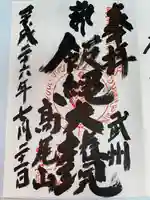 奉拝
武州
飯縄大権現
高尾山
平成二十六年七月二十一日